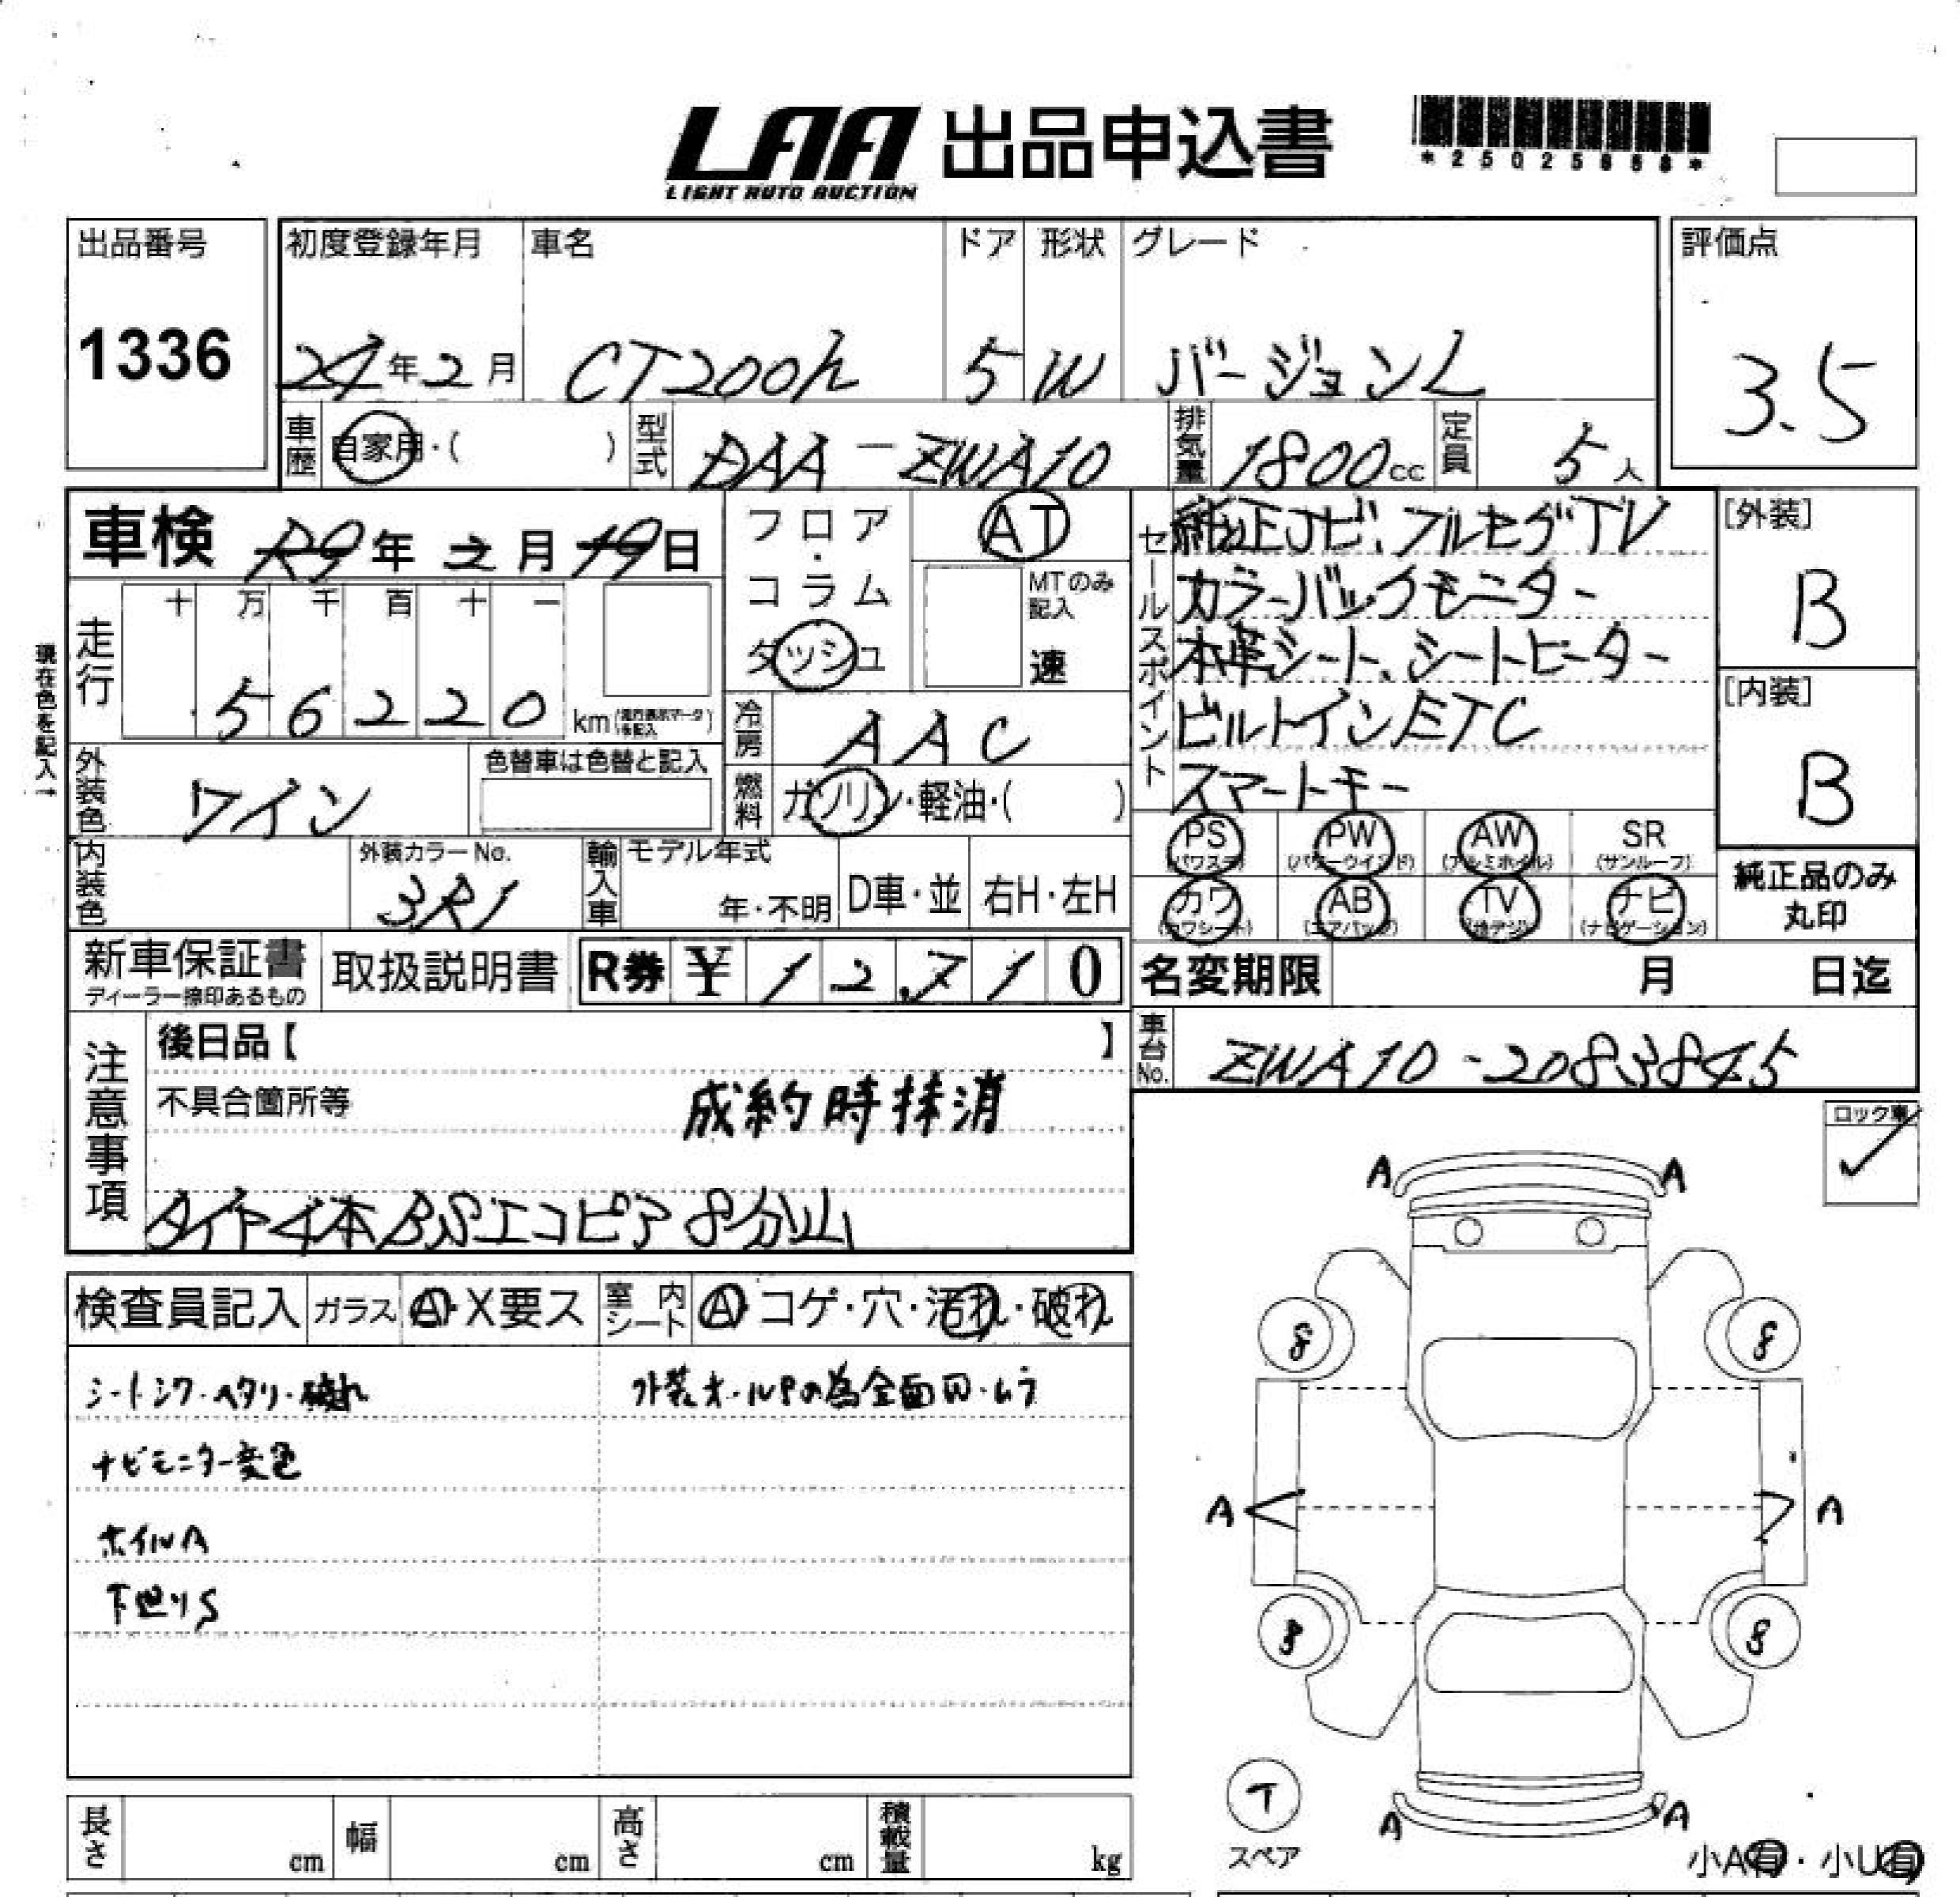 LAA 出品申込書
LIGHT AUTO AUCTION
*25025868*
出品番号 初度登録年月 車名 ドア 形状 グレード 評価点
1336 24年2月 CT200h 5 W バージョンL 3.5
車歴 自家用・( ) 型式 DAA-ZWA10 排気量 1800cc 定員 5人
車検 R9年2月19日
フロア・コラム ダッシュ AT
MTのみ記入 速
セールスポイント
純正ナビ、フルセグTV
カラーバックモニター
本革シート、シートヒーター
ビルトインETC
スマートキー
[外装] B
[内装] B
現在色を記入↑
走行 十 万 千 百 十 一
56220 km
冷房 AAC
外装色 ワイン 色替車は色替と記入
燃料 ガソリン・軽油・( )
内装色 外装カラーNo. 3R1 輸入車 モデル年式 年・不明 D車・並 右H・左H
PS (パワステ) PW (パワーウインド) AW (アルミホイル) SR (サンルーフ)
カワ (カワシート) AB (エアバッグ) TV (地デジ) ナビ (ナビゲーション)
純正品のみ丸印
新車保証書 ディーラー捺印あるもの 取扱説明書 R券 ¥12,710
名変期限 月 日迄
注意事項 後日品【 】
車台No. ZWA10-2083845
不具合箇所等 成約時抹消
タイヤ4本BSエコピア8分山
ロック車
検査員記入 ガラス A・X要ス 室内シート A・コゲ・穴・汚れ・破れ
シートシワ・ヘタリ・破れ 外装オールPの為全面肌・ムラ
ナビモニター変色
ホイルA
下廻りS
A A
8 8
A A
8 8
T
スペア
A A
小A有・小U有
長さ cm 幅 cm 高さ cm 積載量 kg